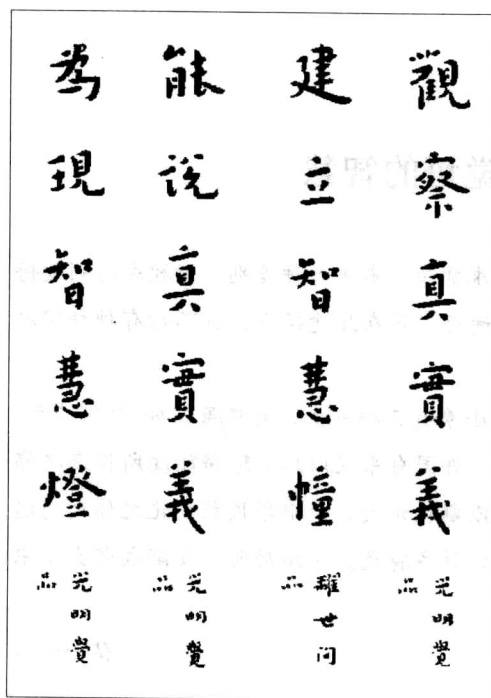 觀察真實義
光明覺品
建立智慧幢
離世間品
能說真實義
光明覺品
為現智慧燈
光明覺品